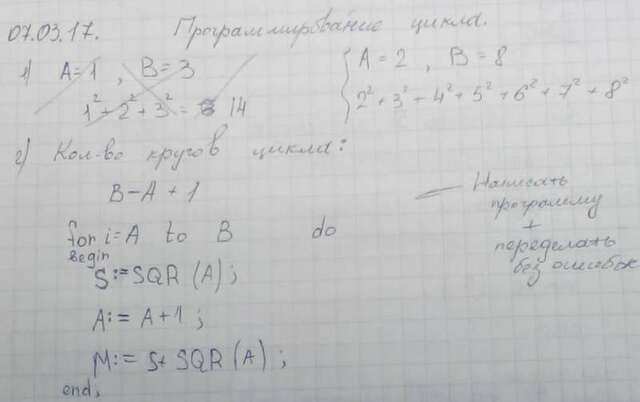 07.03.17. Программирование цикла.
1) A=1, B=3
1² + 2² + 3² = 14
{ A = 2, B = 8
2² + 3² + 4² + 5² + 6² + 7² + 8²
2) Кол-во кругов цикла:
B - A + 1
for i = A to B do
Begin
S := SQR (A);
A := A + 1;
M := S + SQR (A);
end;
Написать
программу
+
переделать
без ошибок